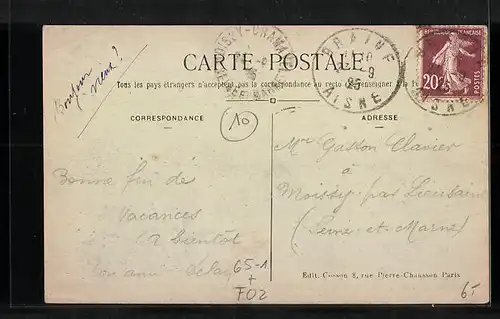 MOISSY-CRAMA
BRAINE
9
AISNE
20c
POSTES
CARTE POSTALE
Tous les pays étrangers n'acceptent pas la correspondance au recto (Se renseigner
Bonjour
vieux ?
CORRESPONDANCE
10
ADRESSE
Mr Gaston Clavier
à
Moissy par Lieusaint
(Seine-et-Marne)
Bonne fin de
Vacances
A bientôt
Ton ami
65-1
+
F02
Edit. Cosson 8, rue Pierre-Chausson Paris
65